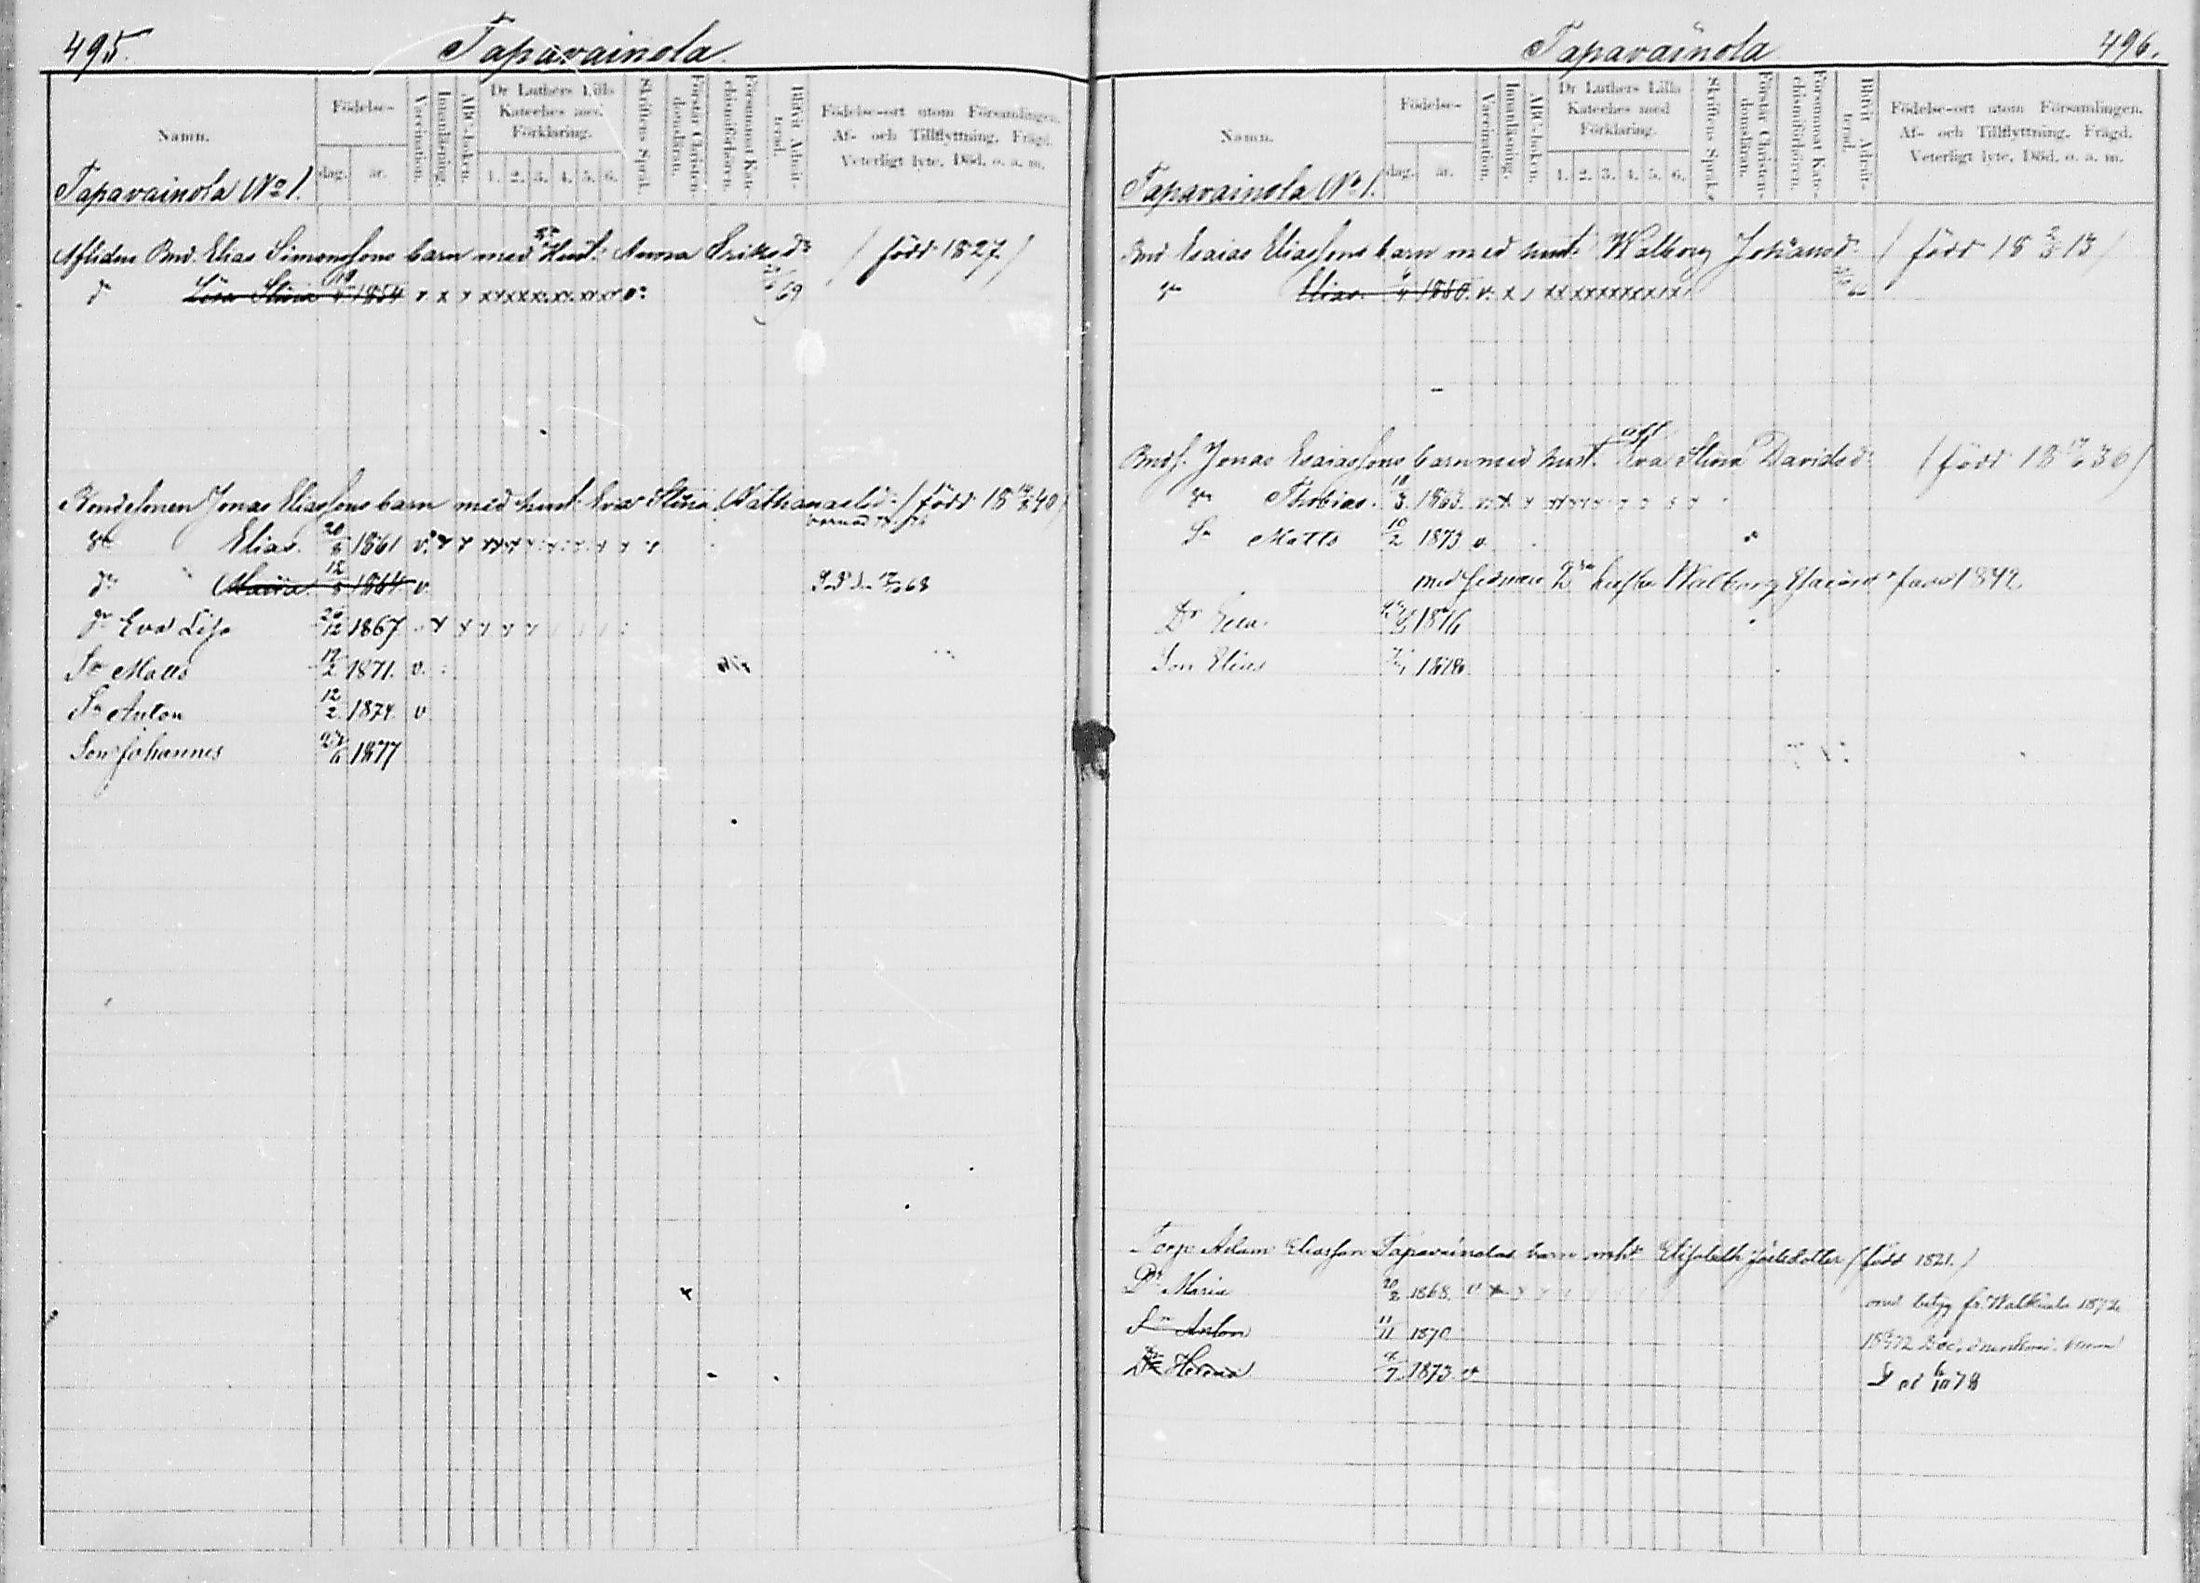 495.
Tapavainola
Namn.
Födelse-
dag.
år.
Vaccination.
Innanläsning.
ABC-boken.
Dr Luthers Lilla Kateches med Förklaring.
1. 2. 3. 4. 5. 6.
Skriftens Språk.
Förstår Christendomsläran.
Försummat Katechismiförhören.
Blifvit Admitterad.
Födelse-ort utom Församlingen.
Af- och Tillflyttning. Frägd.
Veterligt lyte. Död. o. a. m.
Tapavainola No 1.
Aflidne Bnd. Elias Simonssons barn med Hust. Anna Eriksdr (född 1827)
dr Lisa Stina 1854 v x x 69
Bondesonen Jonas Eliassons barn med hust. Eva Stina Nathanaelsd. (född 18 40)
Elias. 20/6 1861 v.
dr Maria 12/8 1864 v. 68
dr Eva Lisa 20/12 1867
Sn Matts 17/2 1871. v.
Sn Anton 12/2 1874. v
Son Johannes 27/6 1877
Tapavainola
496.
Namn.
Födelse-
dag.
år.
Vaccination.
Innanläsning.
ABC-boken.
Dr Luthers Lilla Kateches med Förklaring.
1. 2. 3. 4. 5. 6.
Skriftens Språk.
Förstår Christendomsläran.
Försummat Katechismiförhören.
Blifvit Admitterad.
Födelse-ort utom Församlingen.
Af- och Tillflyttning. Frägd.
Veterligt lyte. Död. o. a. m.
Tapavainola No 1.
Bnd Esaias Eliassons barn med hust. Walborg Johansd. (född 18 2/3 13)
Elias. 1850. v. x
Bnds. Jonas Esaiassons barn med hust. Eva Stina Davidsd. (född 18 36)
Thobias. 10/3 1863. v. x
Sn Matts 10/2 1873 v.
med 2dra hustru Walborg 1842
Dr 1876
Son Elias
Torp. Adam Eliasson Tapavainolas barn m. h. Elisabeth Joelsdotter (född 1821.)
Dr Maria 20/2 1868. v x med betyg fr. Walkeala 1872
Sn Anton 11/11 1870
Dr Helena 9/7 1873 v. 78